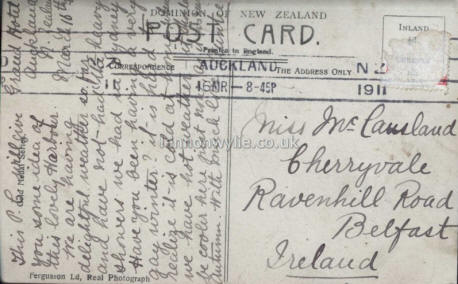 DOMINION OF NEW ZEALAND
POST CARD.
Printed in England.
INLAND
CORRESPONDENCE
THE ADDRESS ONLY
AUCKLAND N.Z
16 MR - 8-45P
1911
Grand Hotel
Auckland
N. Zealand
March 16th
This P.C. will give
you some idea of
this lovely Harbour
We are having
delightful weather so far
and have not had the heavy
showers we had in Sydney
Have you been having a very
gay winter? It is hard to
realize it is cold at
we have hot weather
be cooler here just now as
Autumn. With much love
Miss McCausland
Cherryvale
Ravenhill Road
Belfast
Ireland
Ferguson Ld, Real Photograph
lennonwylie.co.uk